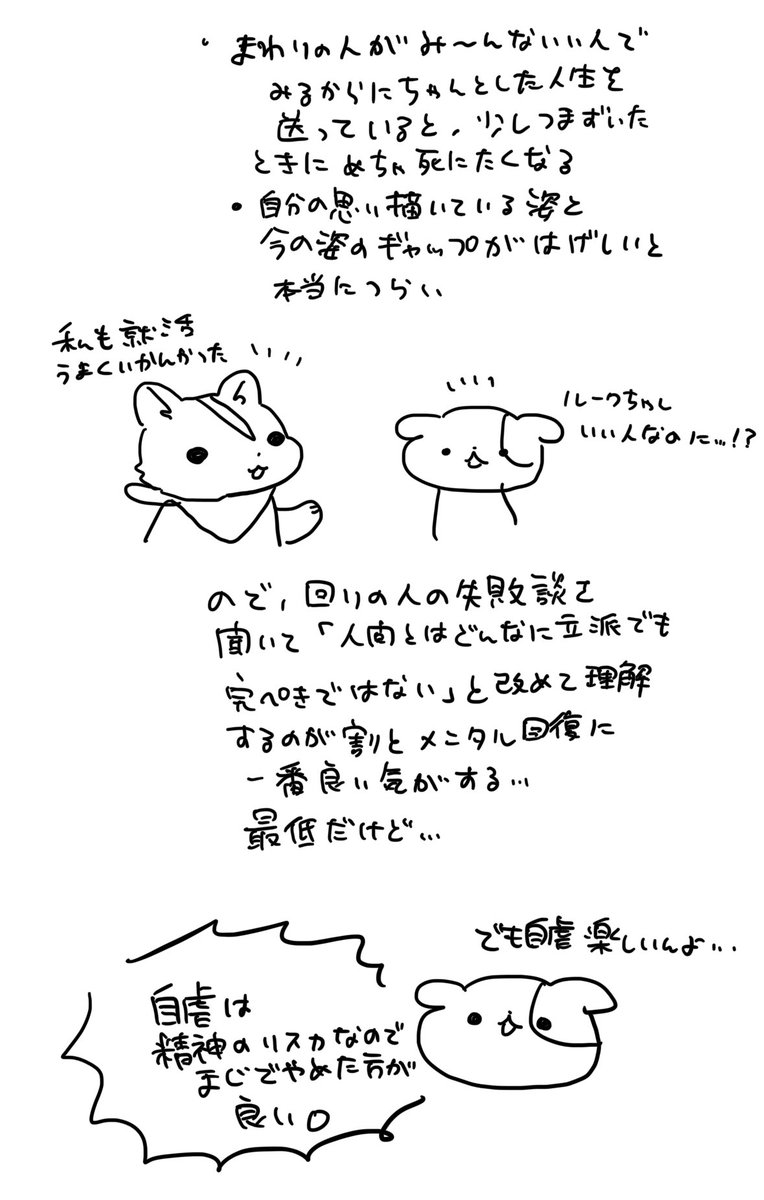 ・まわりの人がみ〜んないい人で
みるからにちゃんとした人生を
送っていると、少しつまずいた
ときにめちゃ死にたくなる
・自分の思い描いている姿と
今の姿のギャップがはげしいと
本当につらい
私も就活
うまくいかんかった
ルークちゃん
いい人なのに…!?
ので、回りの人の失敗談を
聞いて「人間とはどんなに立派でも
完ぺきではない」と改めて理解
するのが割とメンタル回復に
一番良い気がする…
最低だけど…
でも自虐楽しいんよ…
自虐は
精神のリスカなので
まじでやめた方が
良い。